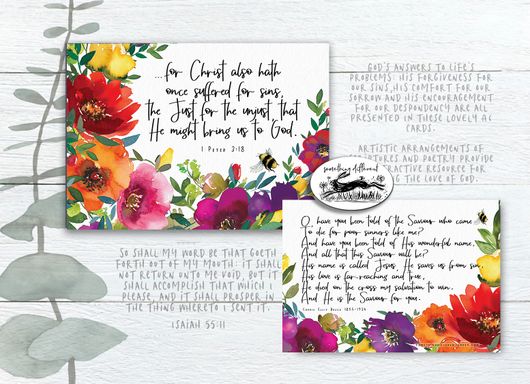 ...for Christ also hath
once suffered for sins,
the Just for the unjust that
He might bring us to God.
1 Peter 3:18
God's answers to life's
problems: His forgiveness for
our sins, His comfort for our
sorrow and His encouragement
for our despondency are all
presented in these lovely A6
cards.
Artistic arrangements of
and poetry provide
resource for
the love of God.
something different
So shall my word be that goeth
forth out of my mouth: it shall
not return unto me void, but it
shall accomplish that which I
please, and it shall prosper in
the thing whereto I sent it.
Isaiah 55:11
O, have you been told of the Saviour who came
To die for poor sinners like me?
And have you been told of His wonderful name,
And all that this Saviour will be?
His name is called Jesus, He saves us from sin,
His love is far-reaching and free,
He died on the cross my salvation to win,
And He is the Saviour for you.